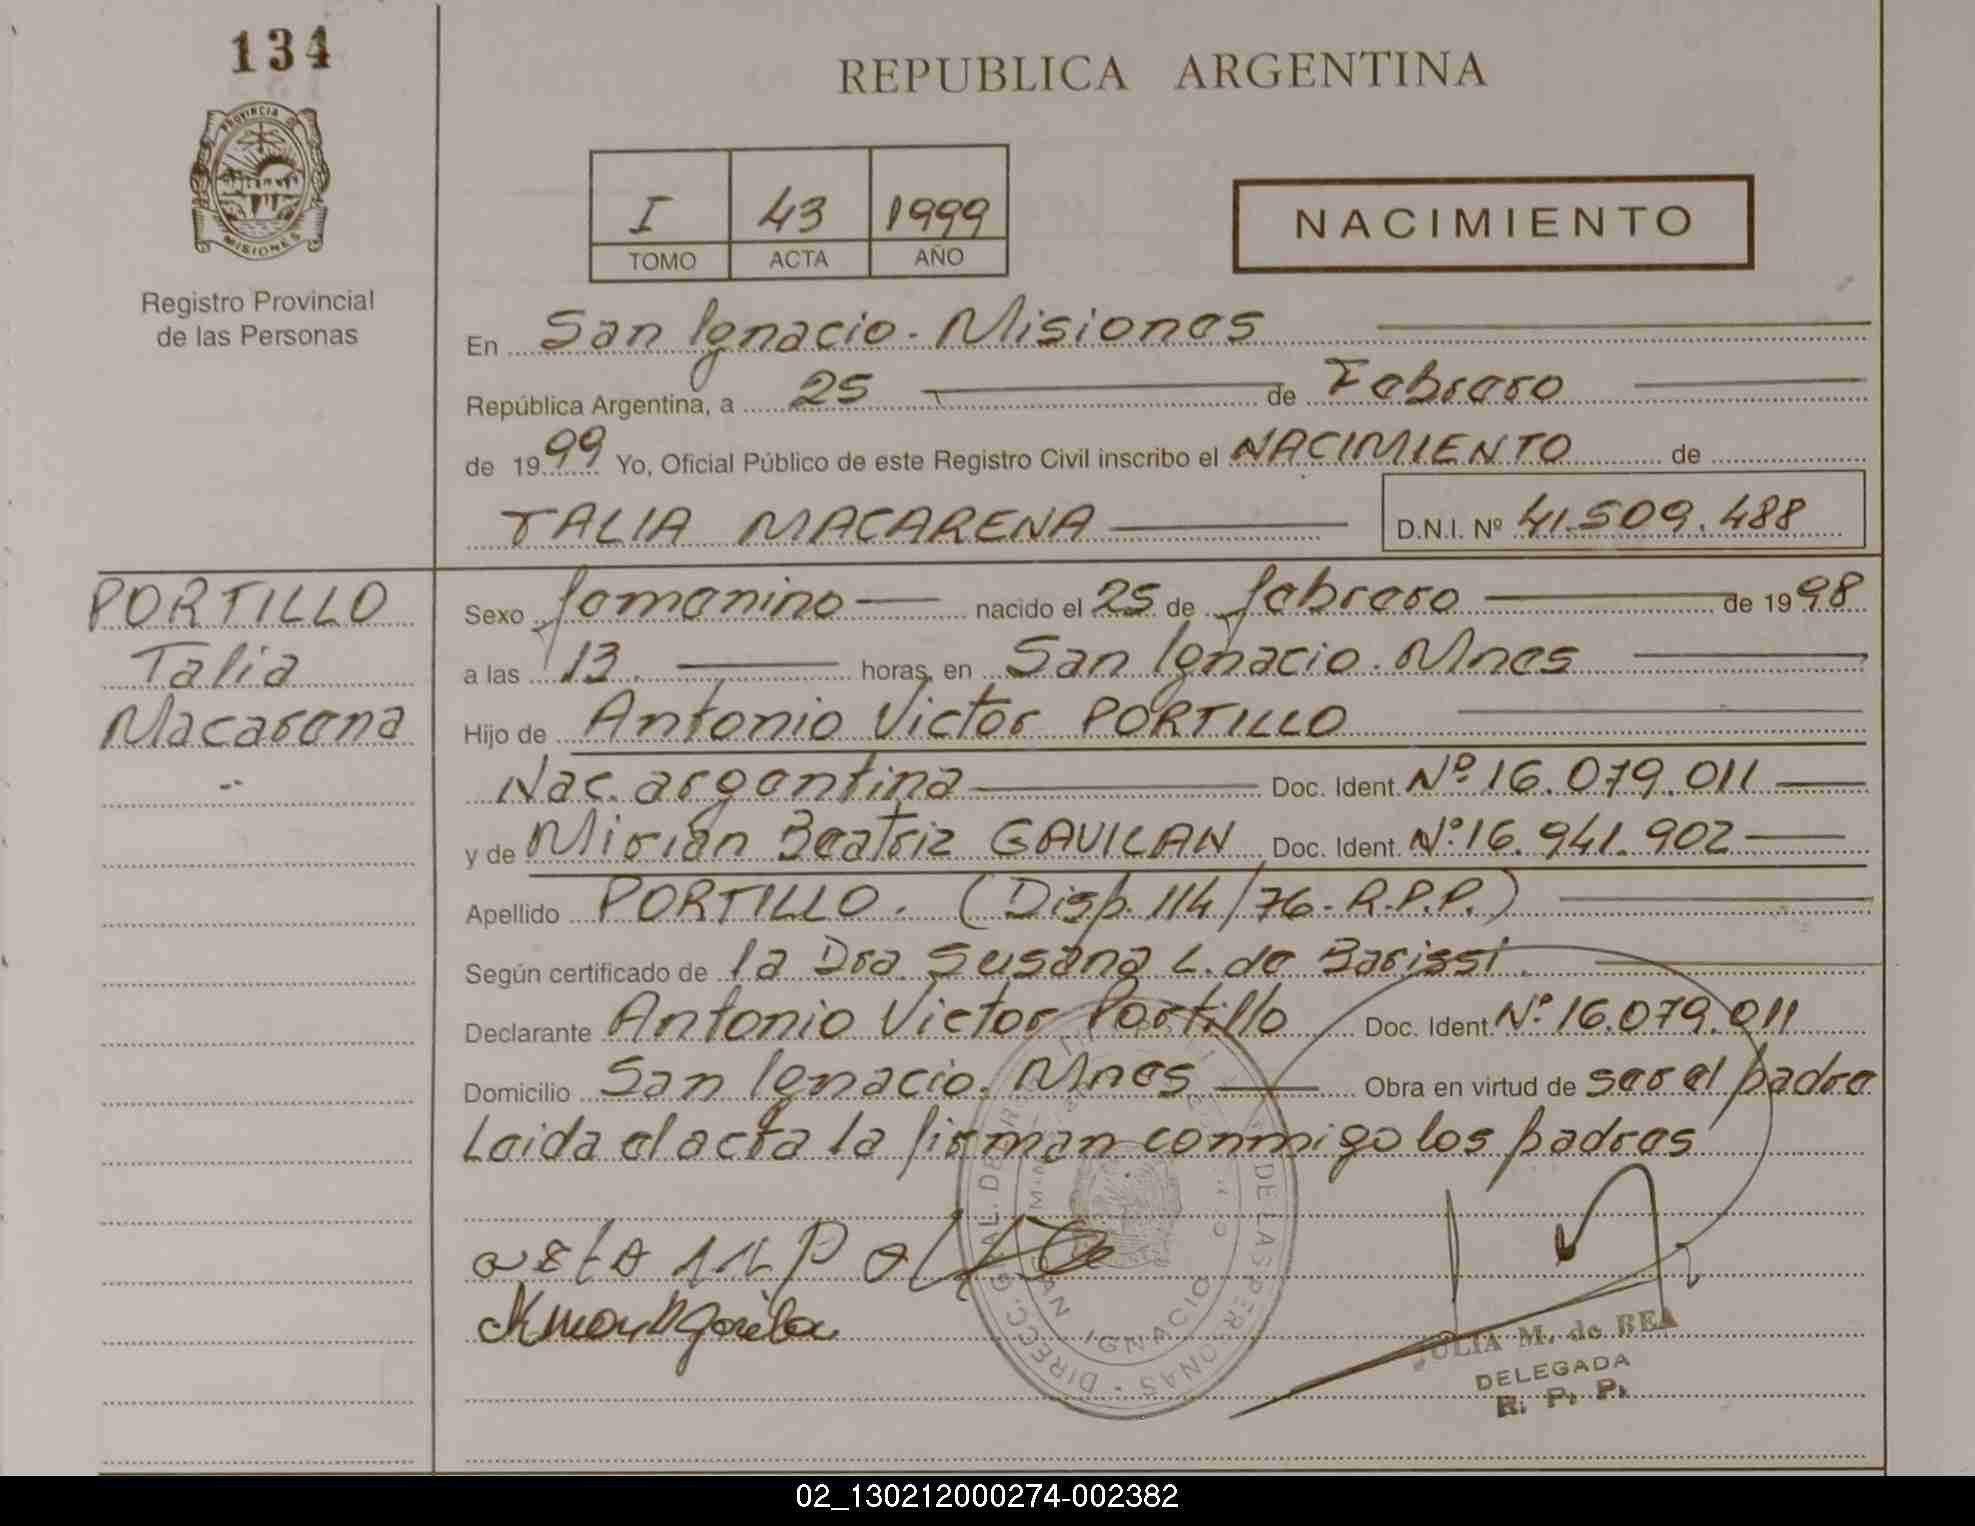 134
REPUBLICA ARGENTINA
PROVINCIA
MISIONES
I 43 1999
TOMO ACTA AÑO
NACIMIENTO
Registro Provincial
de las Personas
En San Ignacio - Misiones
República Argentina, a 25 de Febrero
de 1999 Yo, Oficial Público de este Registro Civil inscribo el NACIMIENTO de
TALIA MACARENA D.N.I. Nº 41.509.488
PORTILLO
Talia
Macarena
Sexo femenino nacido el 25 de febrero de 1998
a las 13. horas, en San Ignacio. Mnes
Hijo de Antonio Victor PORTILLO
Nac. argentina Doc. Ident. Nº 16.079.011
y de Mirian Beatriz GAVILAN Doc. Ident. Nº 16.941.902
Apellido PORTILLO. (Disp. 114/76- R.P.P.)
Según certificado de la Dra. Susana L. de Barissi.
Declarante Antonio Victor Portillo Doc. Ident. Nº 16.079.011
Domicilio San Ignacio. Mnes Obra en virtud de ser el padre
Leida el acta la firman conmigo los padres
SAN IGNACIO
JULIA M. de REA
DELEGADA
R. P. P.
02_130212000274-002382